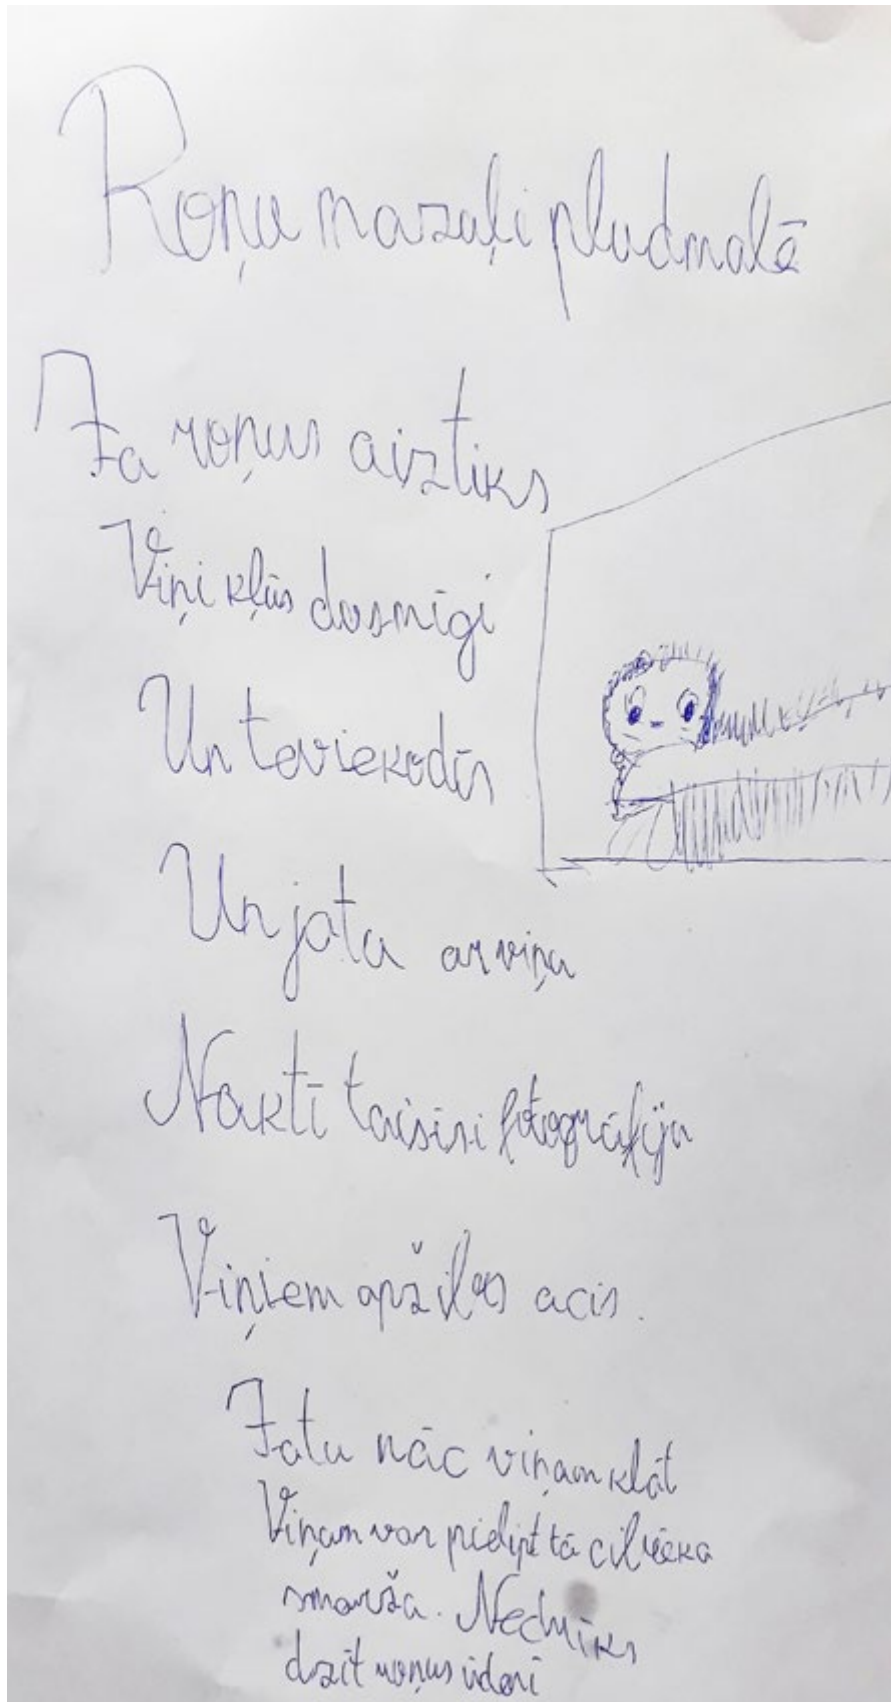 Roņu mazuļi pludmalē
Ja roņus aiztiks
Viņi kļūs dusmīgi
Un tevi ekodīs
Un ja tu ar viņu
Naktī taisīsi fotogrāfiju
Viņiem apžilbs acis.
Ja tu nāc viņam klāt
Viņam var pielipt tā cilvēka
smarža. Nedrīks
dzīt roņus ūdenī